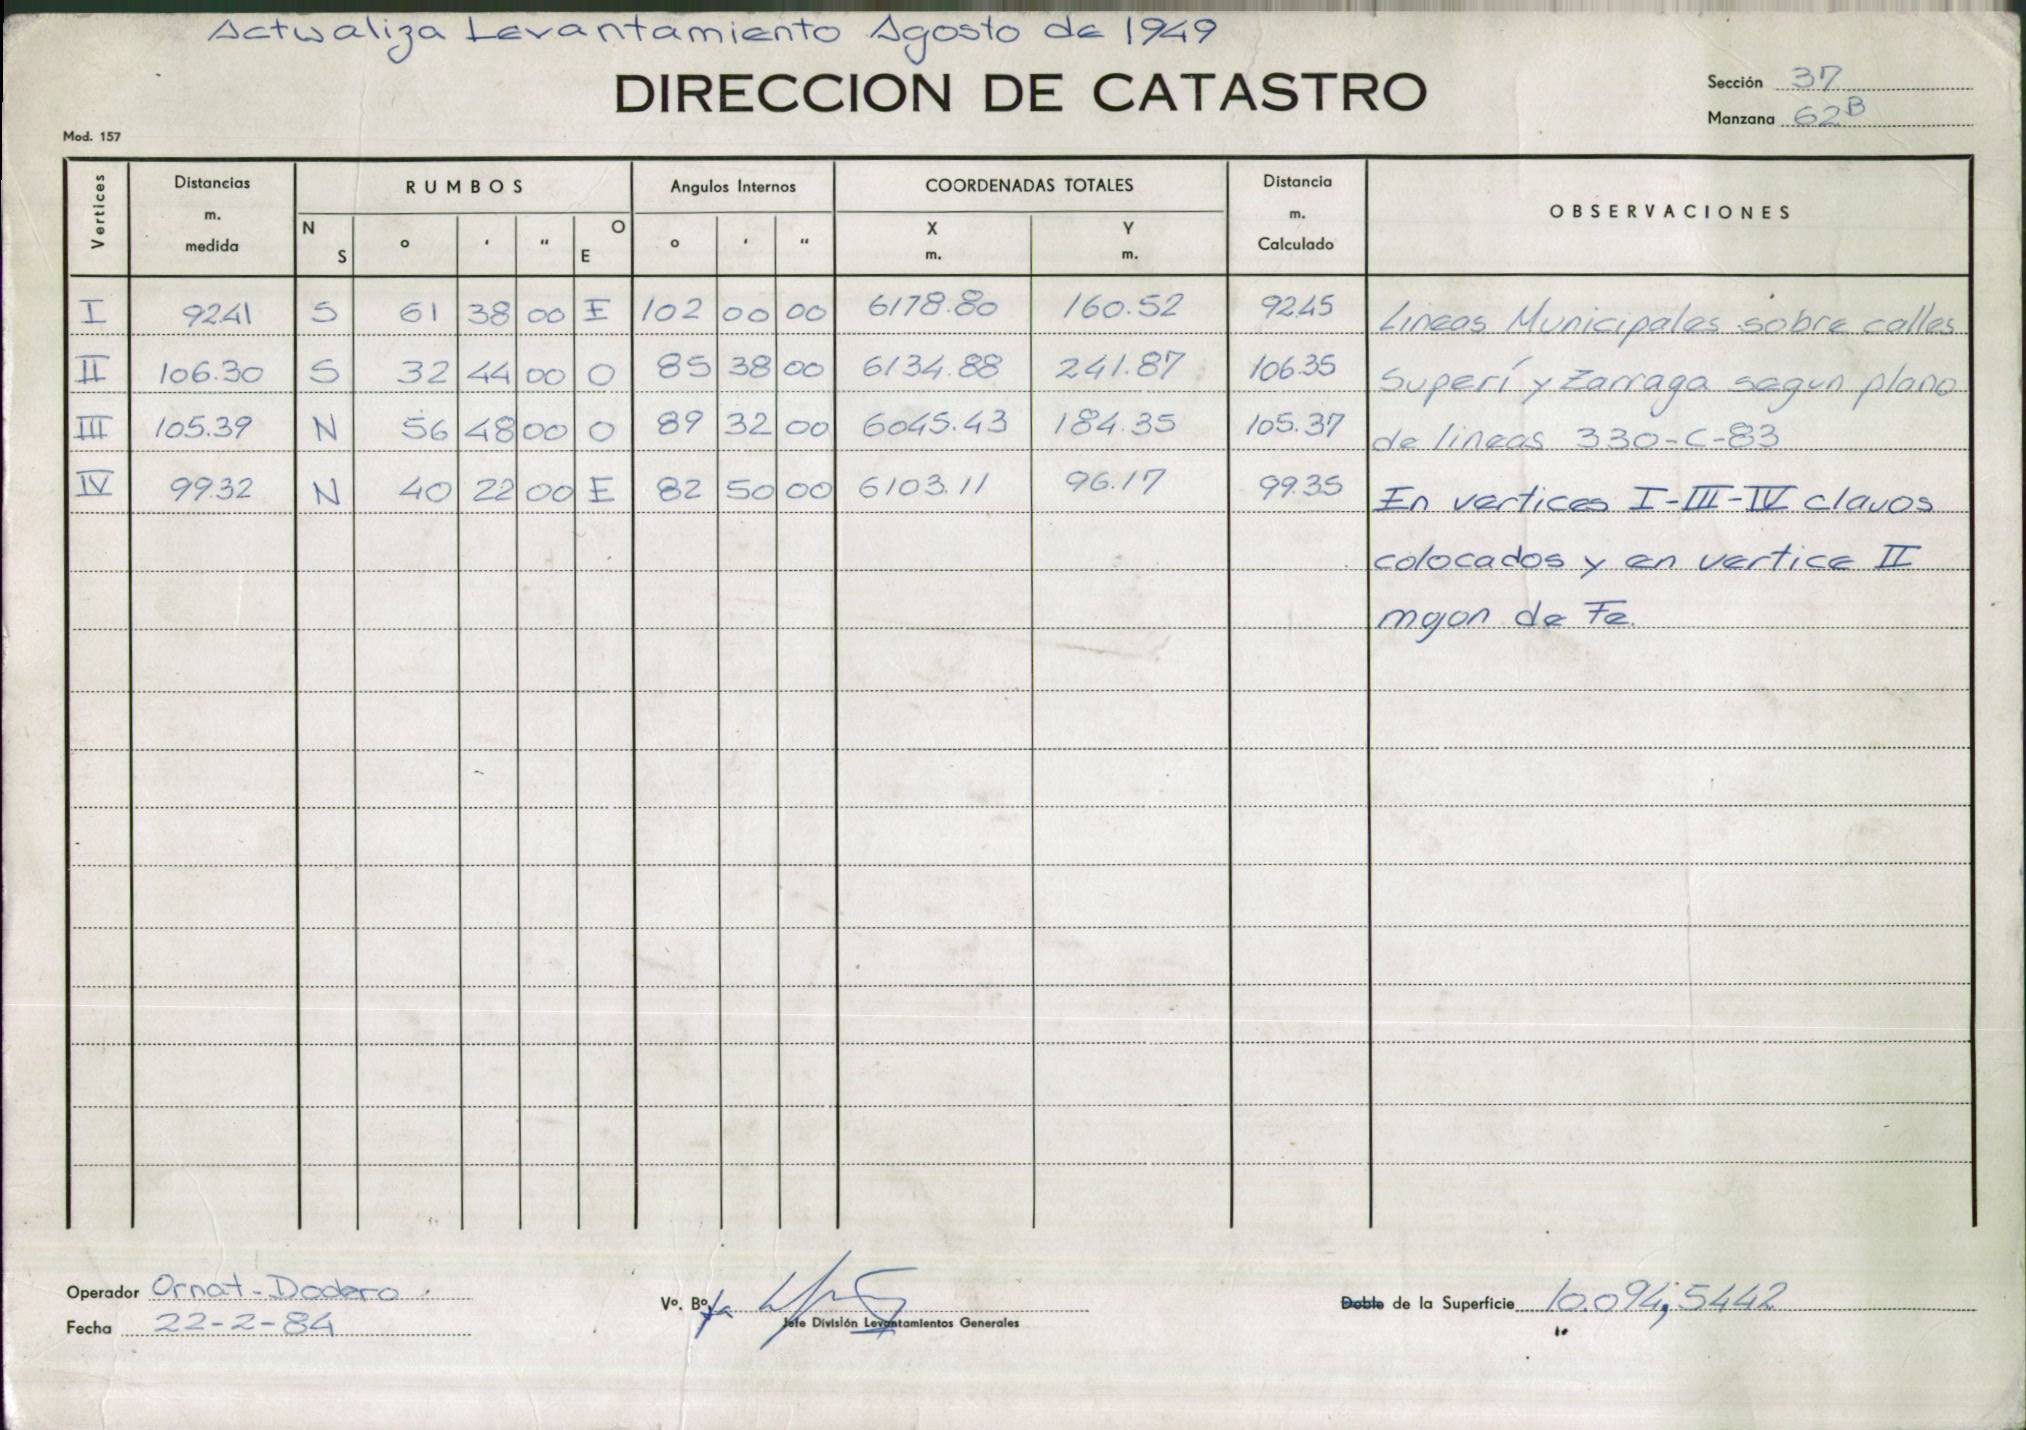 Actualiza Levantamiento Agosto de 1949
DIRECCION DE CATASTRO
Sección 37
Manzana 62B
Mod. 157
Vertices Distancias m. medida RUMBOS Angulos Internos COORDENADAS TOTALES Distancia m. Calculado OBSERVACIONES
N S ° ' " O E ° ' " X m. Y m.
I 92.41 S 61 38 00 E 102 00 00 6178.80 160.52 92.45 Lineas Municipales sobre calles
II 106.30 S 32 44 00 O 85 38 00 6134.88 241.87 106.35 Superí y Zarraga segun plano
III 105.39 N 56 48 00 O 89 32 00 6045.43 184.35 105.37 de lineas 330-C-83
IV 99.32 N 40 22 00 E 82 50 00 6103.11 96.17 99.35 En vertices I-III-IV clavos
colocados y en vertice II
mojon de Fe.
Operador Ornat-Dodero
Fecha 22-2-84
Vº. Bº
Jefe División Levantamientos Generales
Doble de la Superficie 10.094,5442